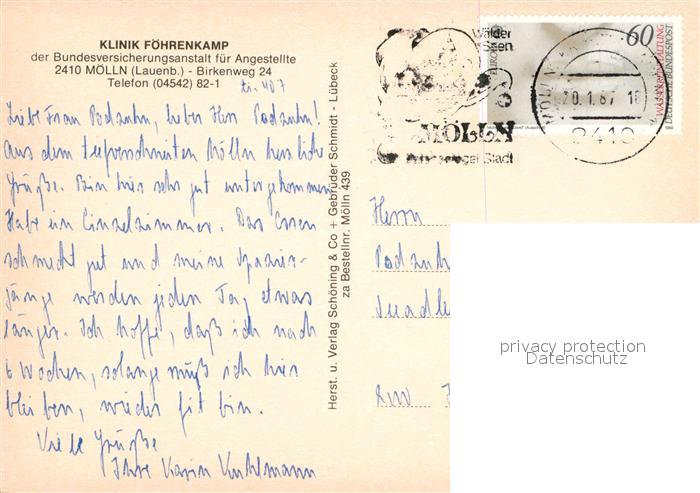 KLINIK FÖHRENKAMP
der Bundesversicherungsanstalt für Angestellte
2410 MÖLLN (Lauenb.) - Birkenweg 24
Telefon (04542) 82-1
407
Liebe Frau Podzuhn, lieber Herr Podzuhn!
Aus dem tiefverschneiten Mölln herzliche
Grüße. Bin hier sehr gut untergekommen
Habe ein Einzelzimmer. Das Essen
schmeckt gut und meine Spazier-
gänge werden jeden Tag etwas
länger. Ich hoffe, daß ich nach
6 Wochen, solange muß ich hier
bleiben, wieder fit bin.
Viele Grüße
Ihre Karin Kuhlmann
Herst. u. Verlag Schöning & Co + Gebrüder Schmidt - Lübeck
zu Bestellnr. Mölln 439
Wälder
Seen
MÖLLN
Stadt
EUROPA
60
WASSERREINHALTUNG
DEUTSCHE BUNDESPOST
MÖLLN
20.1.87
2410
Herrn
Podzuh
privacy protection
Datenschutz